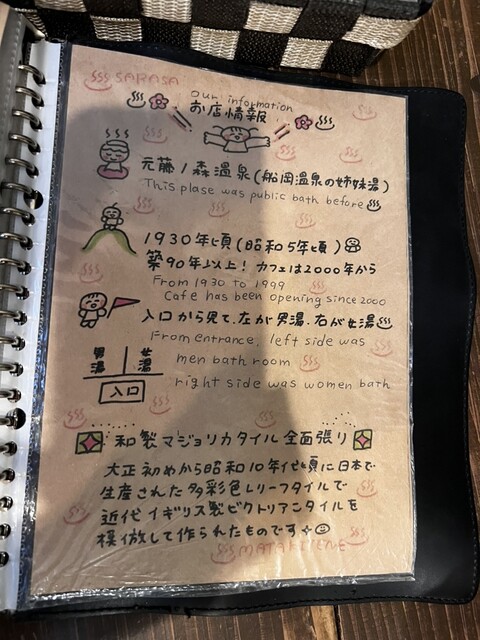 SARASA
Our information
お店情報
元藤ノ森温泉(船岡温泉の姉妹湯)
This plase was public bath before
1930年頃(昭和5年頃)
築90年以上! カフェは2000年から
From 1930 to 1999
Cafe has been opening since 2000
入口から見て、左が男湯、右が女湯
From entrance, left side was
men bath room
right side was women bath
男湯 女湯
入口
和製マジョリカタイル全面張り
大正初めから昭和10年代頃に日本で
生産された多彩色レリーフタイルで
近代イギリス製ビクトリアンタイルを
模倣して作られたものです